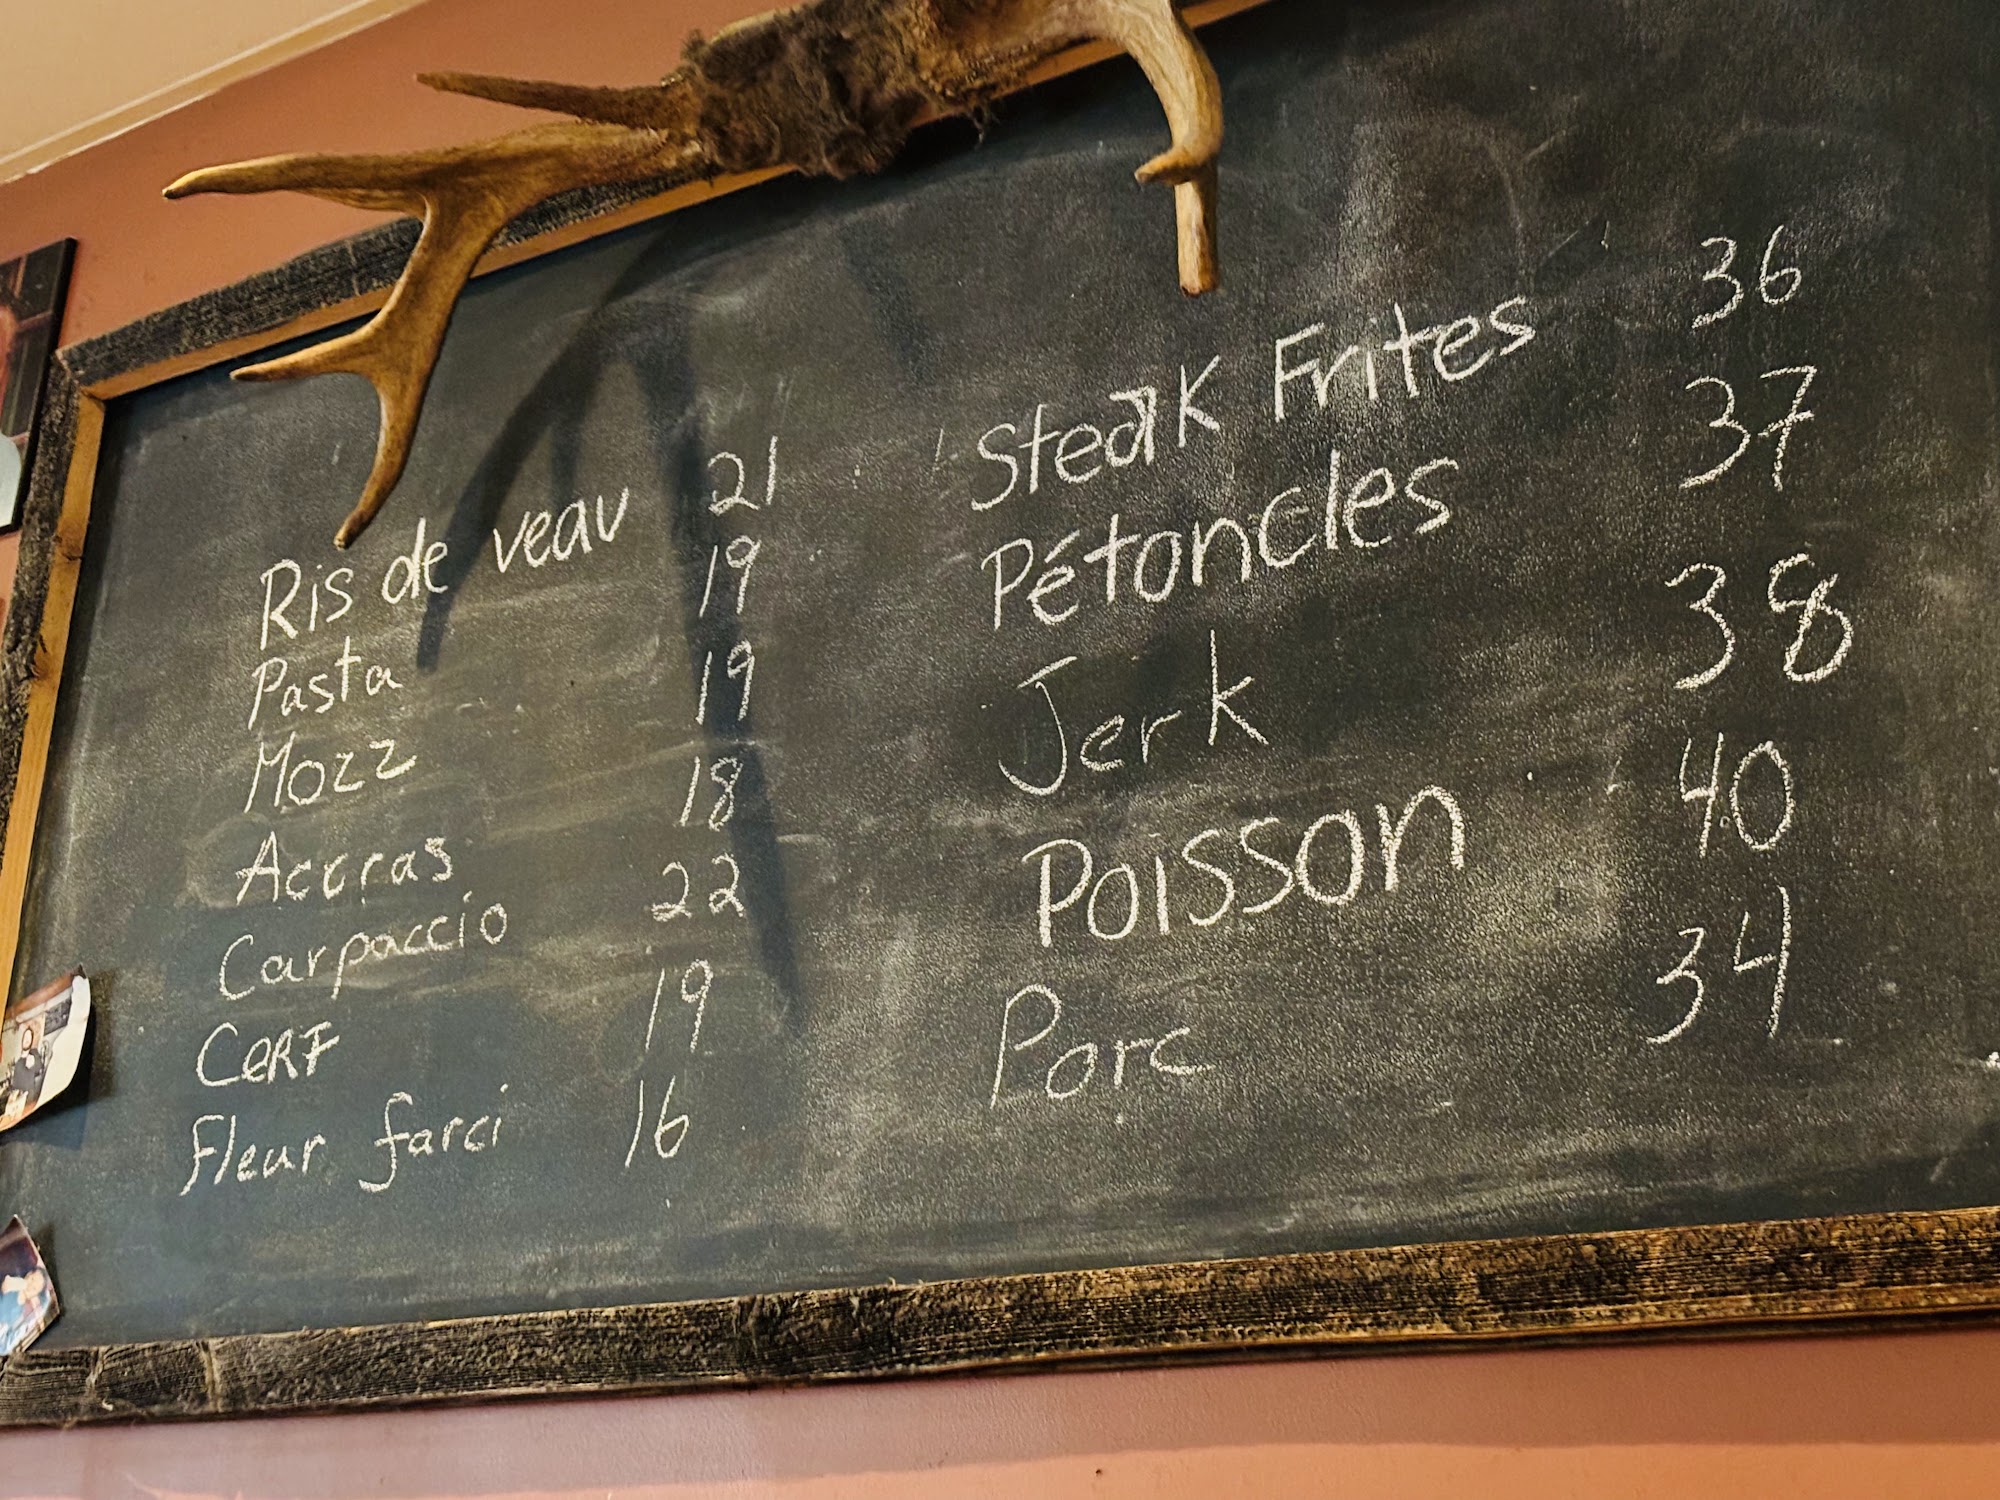 Ris de veau 21
Pasta 19
Mozz 19
Accras 18
Carpaccio 22
CeRF 19
Fleur farci 16
Steak Frites 36
Pétoncles 37
Jerk 38
Poisson 40
Porc 34